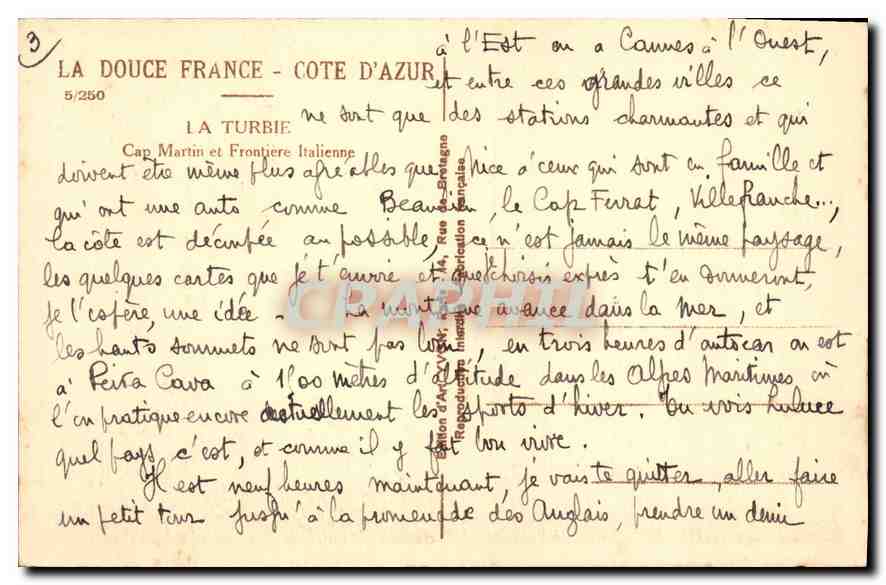 3
à l'Est on a Cannes à l'Ouest,
LA DOUCE FRANCE - COTE D'AZUR
et entre ces grandes villes ce
5/250
ne sont que des stations charmantes et qui
LA TURBIE
Cap Martin et Frontière Italienne
doivent être même plus agréables que Nice à ceux qui sont en famille et
qui ont une auto comme Beaulieu, le Cap Ferrat, Villefranche...,
la côte est découpée au possible, ce n'est jamais le même paysage,
les quelques cartes que je t'envoie et que je choisis exprès t'en donneront,
je l'espère, une idée - La montagne avance dans la mer, et
les hauts sommets ne sont pas loin, en trois heures d'autocar on est
à Peira Cava à 1500 mètres d'altitude dans les Alpes Maritimes où
l'on pratique encore actuellement les sports d'hiver. Tu vois
quel pays c'est, et comme il y fait bon vivre.
Il est neuf heures maintenant, je vais te quitter, aller faire
un petit tour jusqu'à la promenade des Anglais, prendre un demi
Edition d'Art YVON, 14, Rue de Bretagne
Reproduction Interdite Fabrication française
CPAPHIL